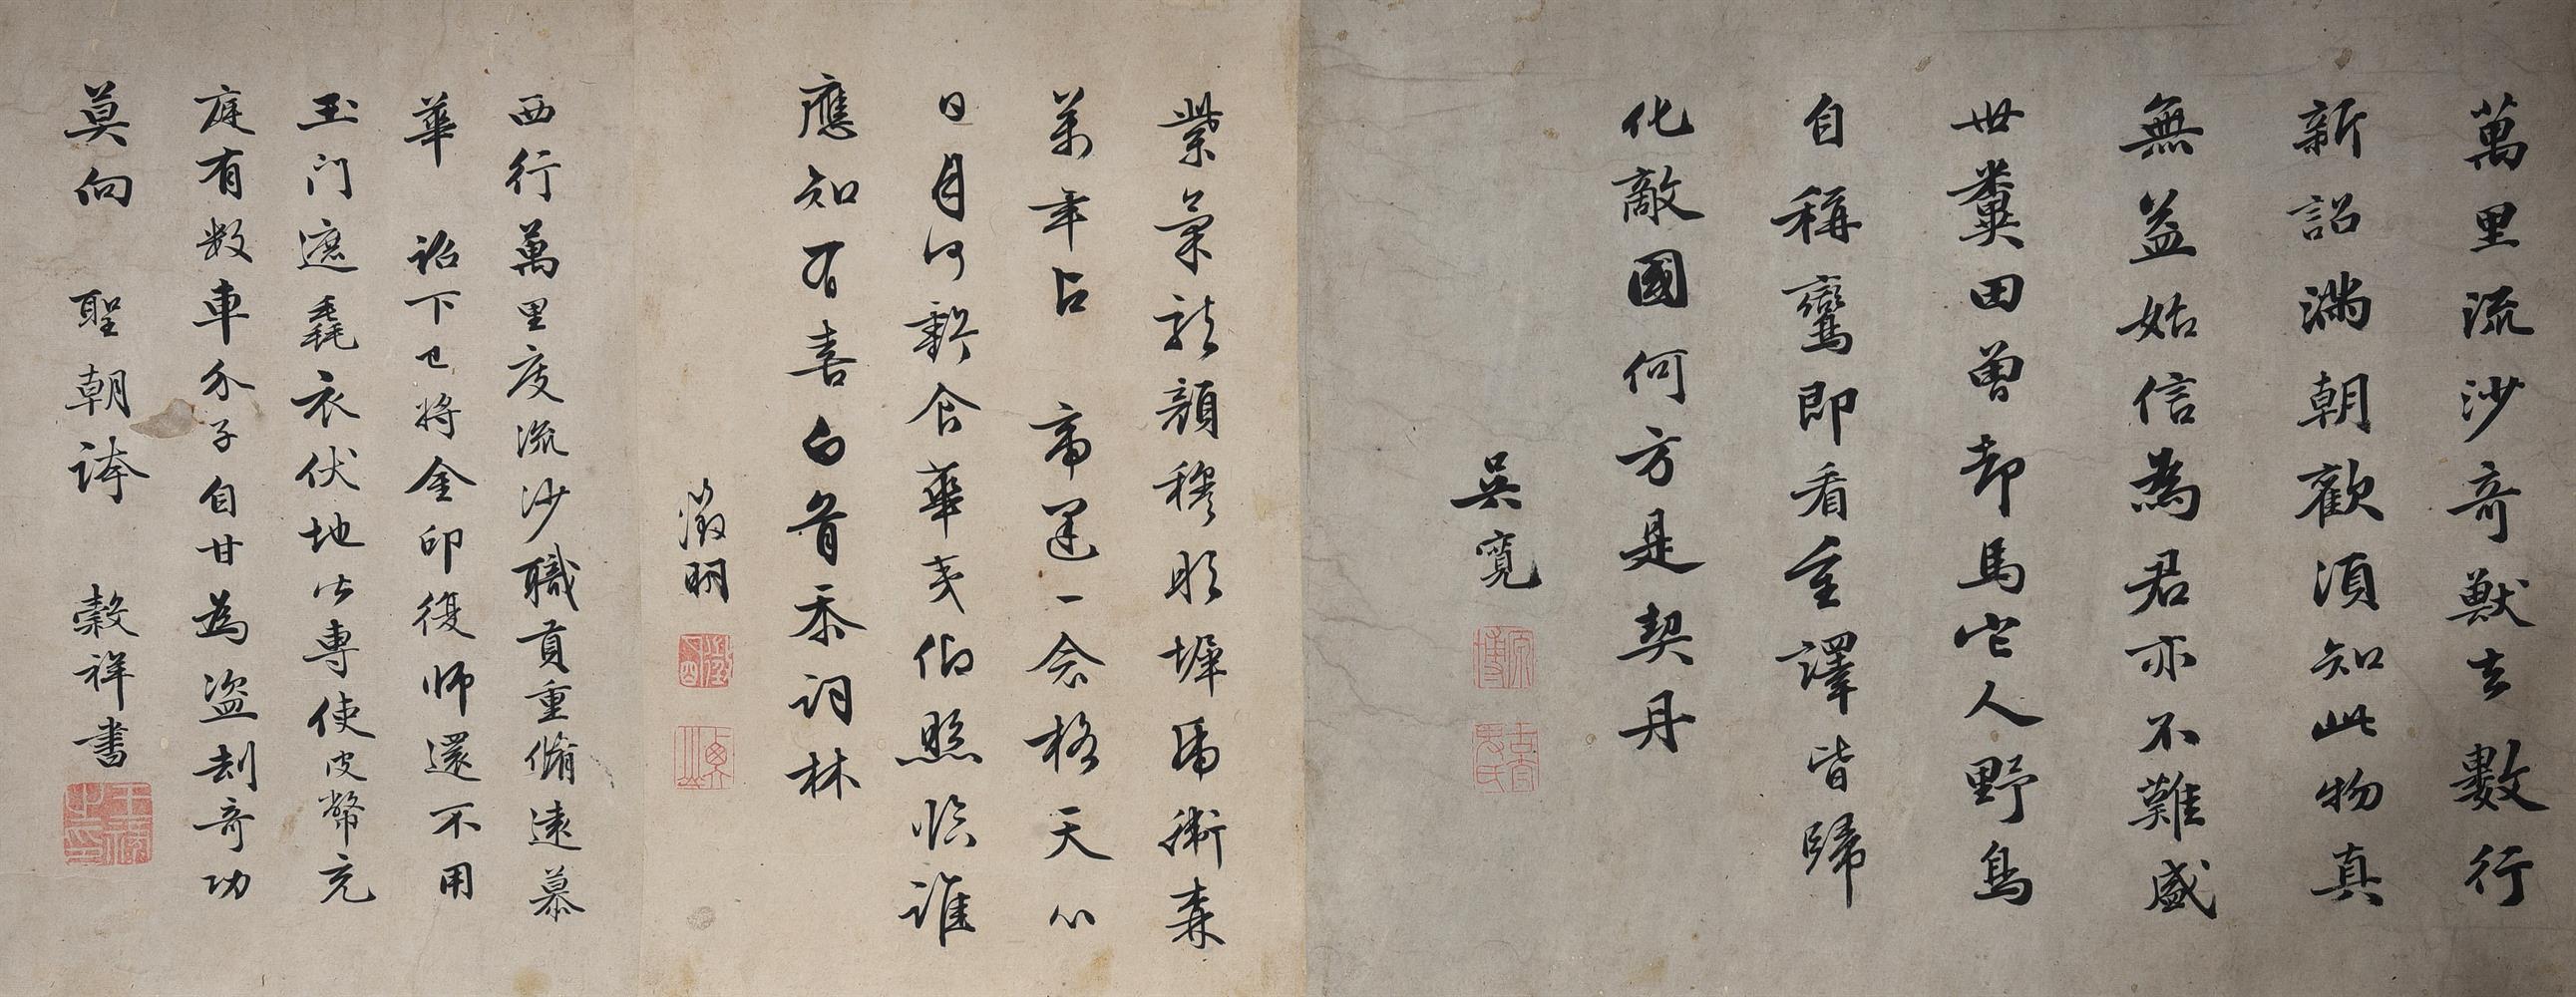 萬里流沙奇獸去數行
新詔滿朝歡須知此物真
無益姑信為君亦不難盛
世糞田曾却馬它人野鳥
自稱鸞即看重譯皆歸
化敵國何方是契丹
吳寬
紫氣龍顏穆眂墀馬衛森
萬年占帝運一念格天心
日月何虧食華夷仰照臨誰
應知有喜白首忝詞林
徵明
西行萬里度流沙職貢重脩遠慕
華詔下已將金印復師還不用
玉门遮毳衣伏地出專使皮幣充
庭有数車介子自甘為盜刦奇功
莫向聖朝誇
穀祥書